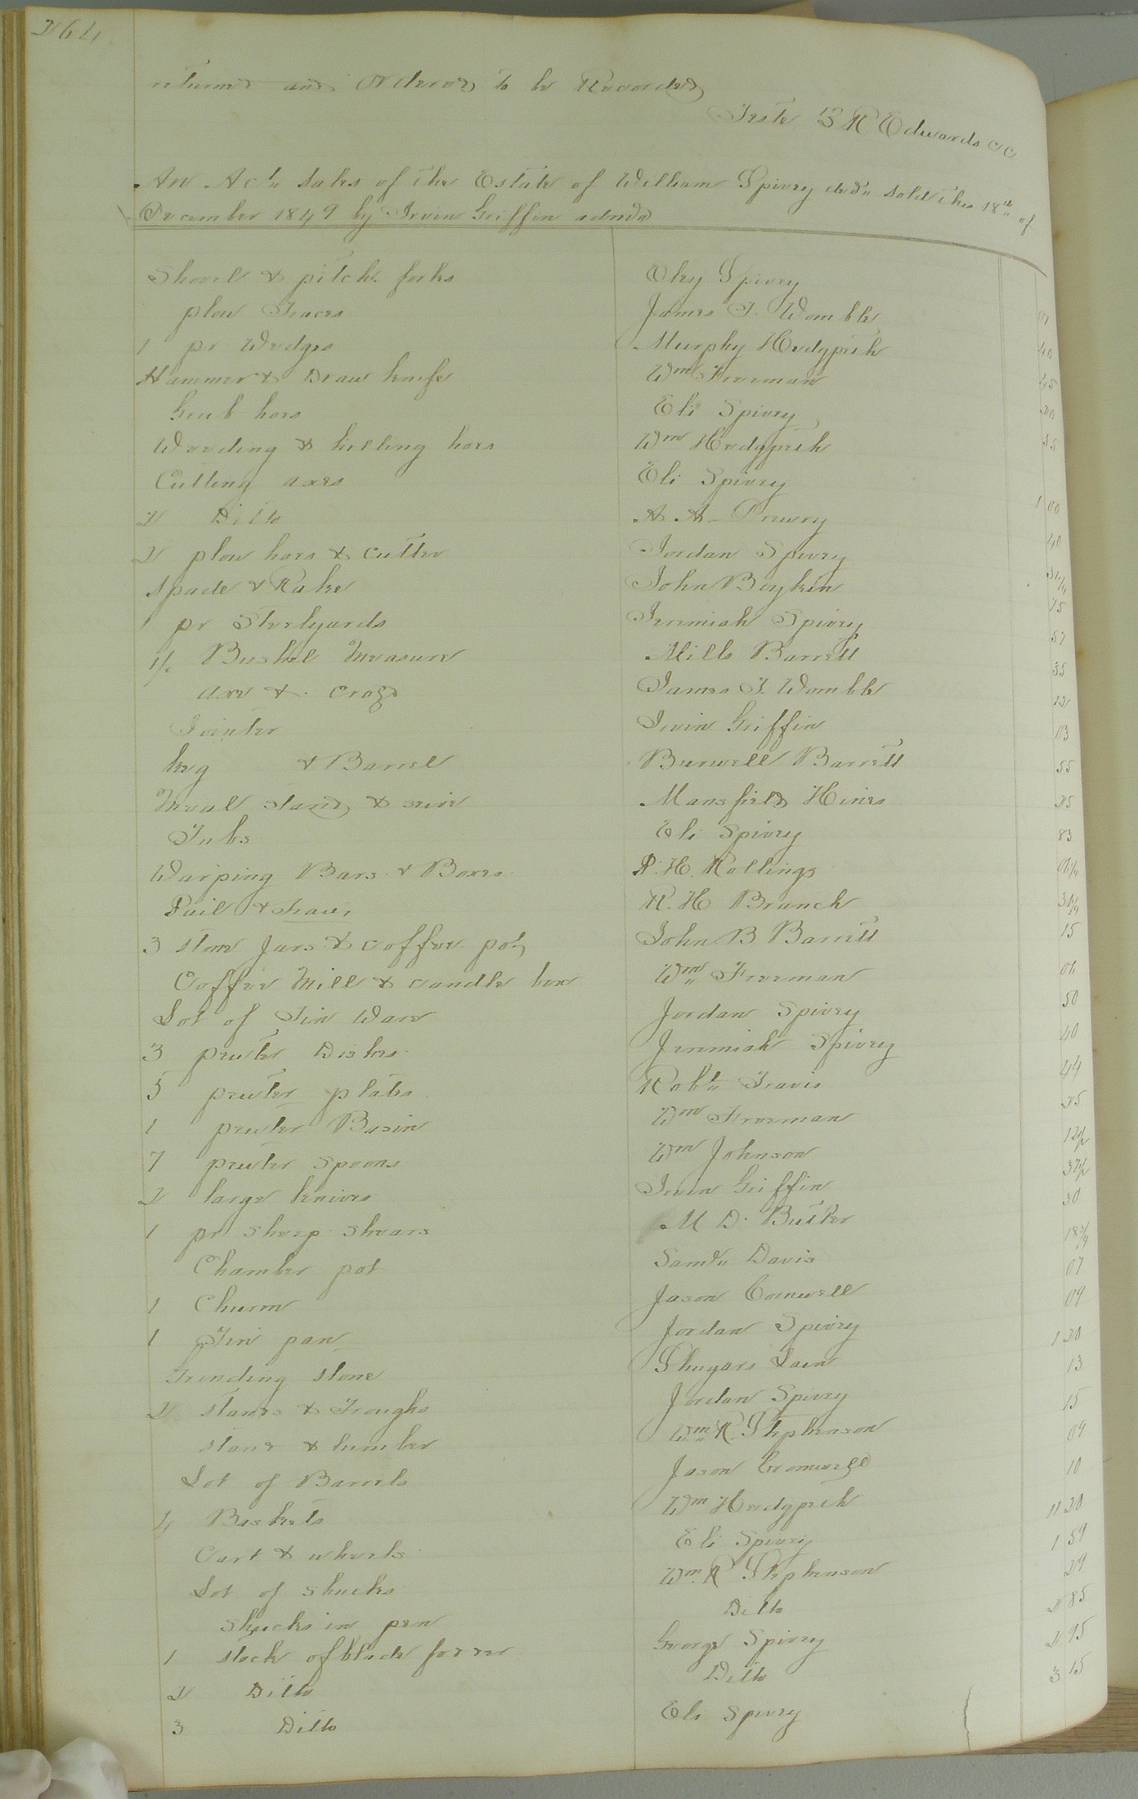 264
returned and Ordered to be Recorded
Teste B R Edwards CC
An Act. Sales of the Estate of William Spivey decd. sold this 18th of
December 1849 by Irvin Griffin admr
Shovel & pitch forks Eley Spivey
plow Traces James T. Womble 01
1 pr Wedges Murphy Hedgpeth 40
Hammer & Draw knife Wm Freeman 45
Grub hoes Eli Spivey 20
Weeding & hilling hoes Wm Hedgpeth
Cutting axes Eli Spivey 1 00
2 Ditto A. A. 40
2 plow hoes & cutter Jordan Spivey
Spade & Rake John Boykin 75
1 pr Steelyards Jeremiah Spivey 57
1/2 Bushel Measure Mills Barrett 35
axe & croze James T. Womble 12
Jointer Irvin Griffin 03
keg & Barrel Burwell Barrett 55
Meal stand & sieve Mansfield Hines 25
Tubs Eli Spivey 83
Warping Bars & Boxes P. H. Rollings 06 1/4
Pail & R. H Branch
3 stone Jars & coffee pot John B Barrett 15
Coffee Mill & candle box Wm Freeman 06
Lot of Tin Ware Jordan Spivey 50
3 pewter Dishes Jeremiah Spivey 40
5 pewter plates Robt. Travis 44
1 pewter Basin Wm Freeman 25
7 pewter Spoons Wm Johnson 12 1/2
2 large knives Irvin Griffin 37 1/2
1 pr sheep shears M D. Butler 30
Chamber pot Saml. Davis 18 3/4
1 Churn Jason Cornwell 07
1 Tin pan Jordan Spivey 09
Grinding stone Shugars Lain 1 20
2 stands & Troughs Jordan Spivey 13
stand & lumber Wm R. Stephenson 15
Lot of Barrels Jason Cornwell 09
4 Baskets Wm Hedgpeth 10
Cart & wheels Eli Spivey 11 20
Lot of shucks Wm. R Stephenson 1 59
Shucks in pen Ditto 29
1 stack of blade fodder George Spivey 2 85
2 Ditto Ditto 2 95
3 Ditto Eli Spivey 3 15